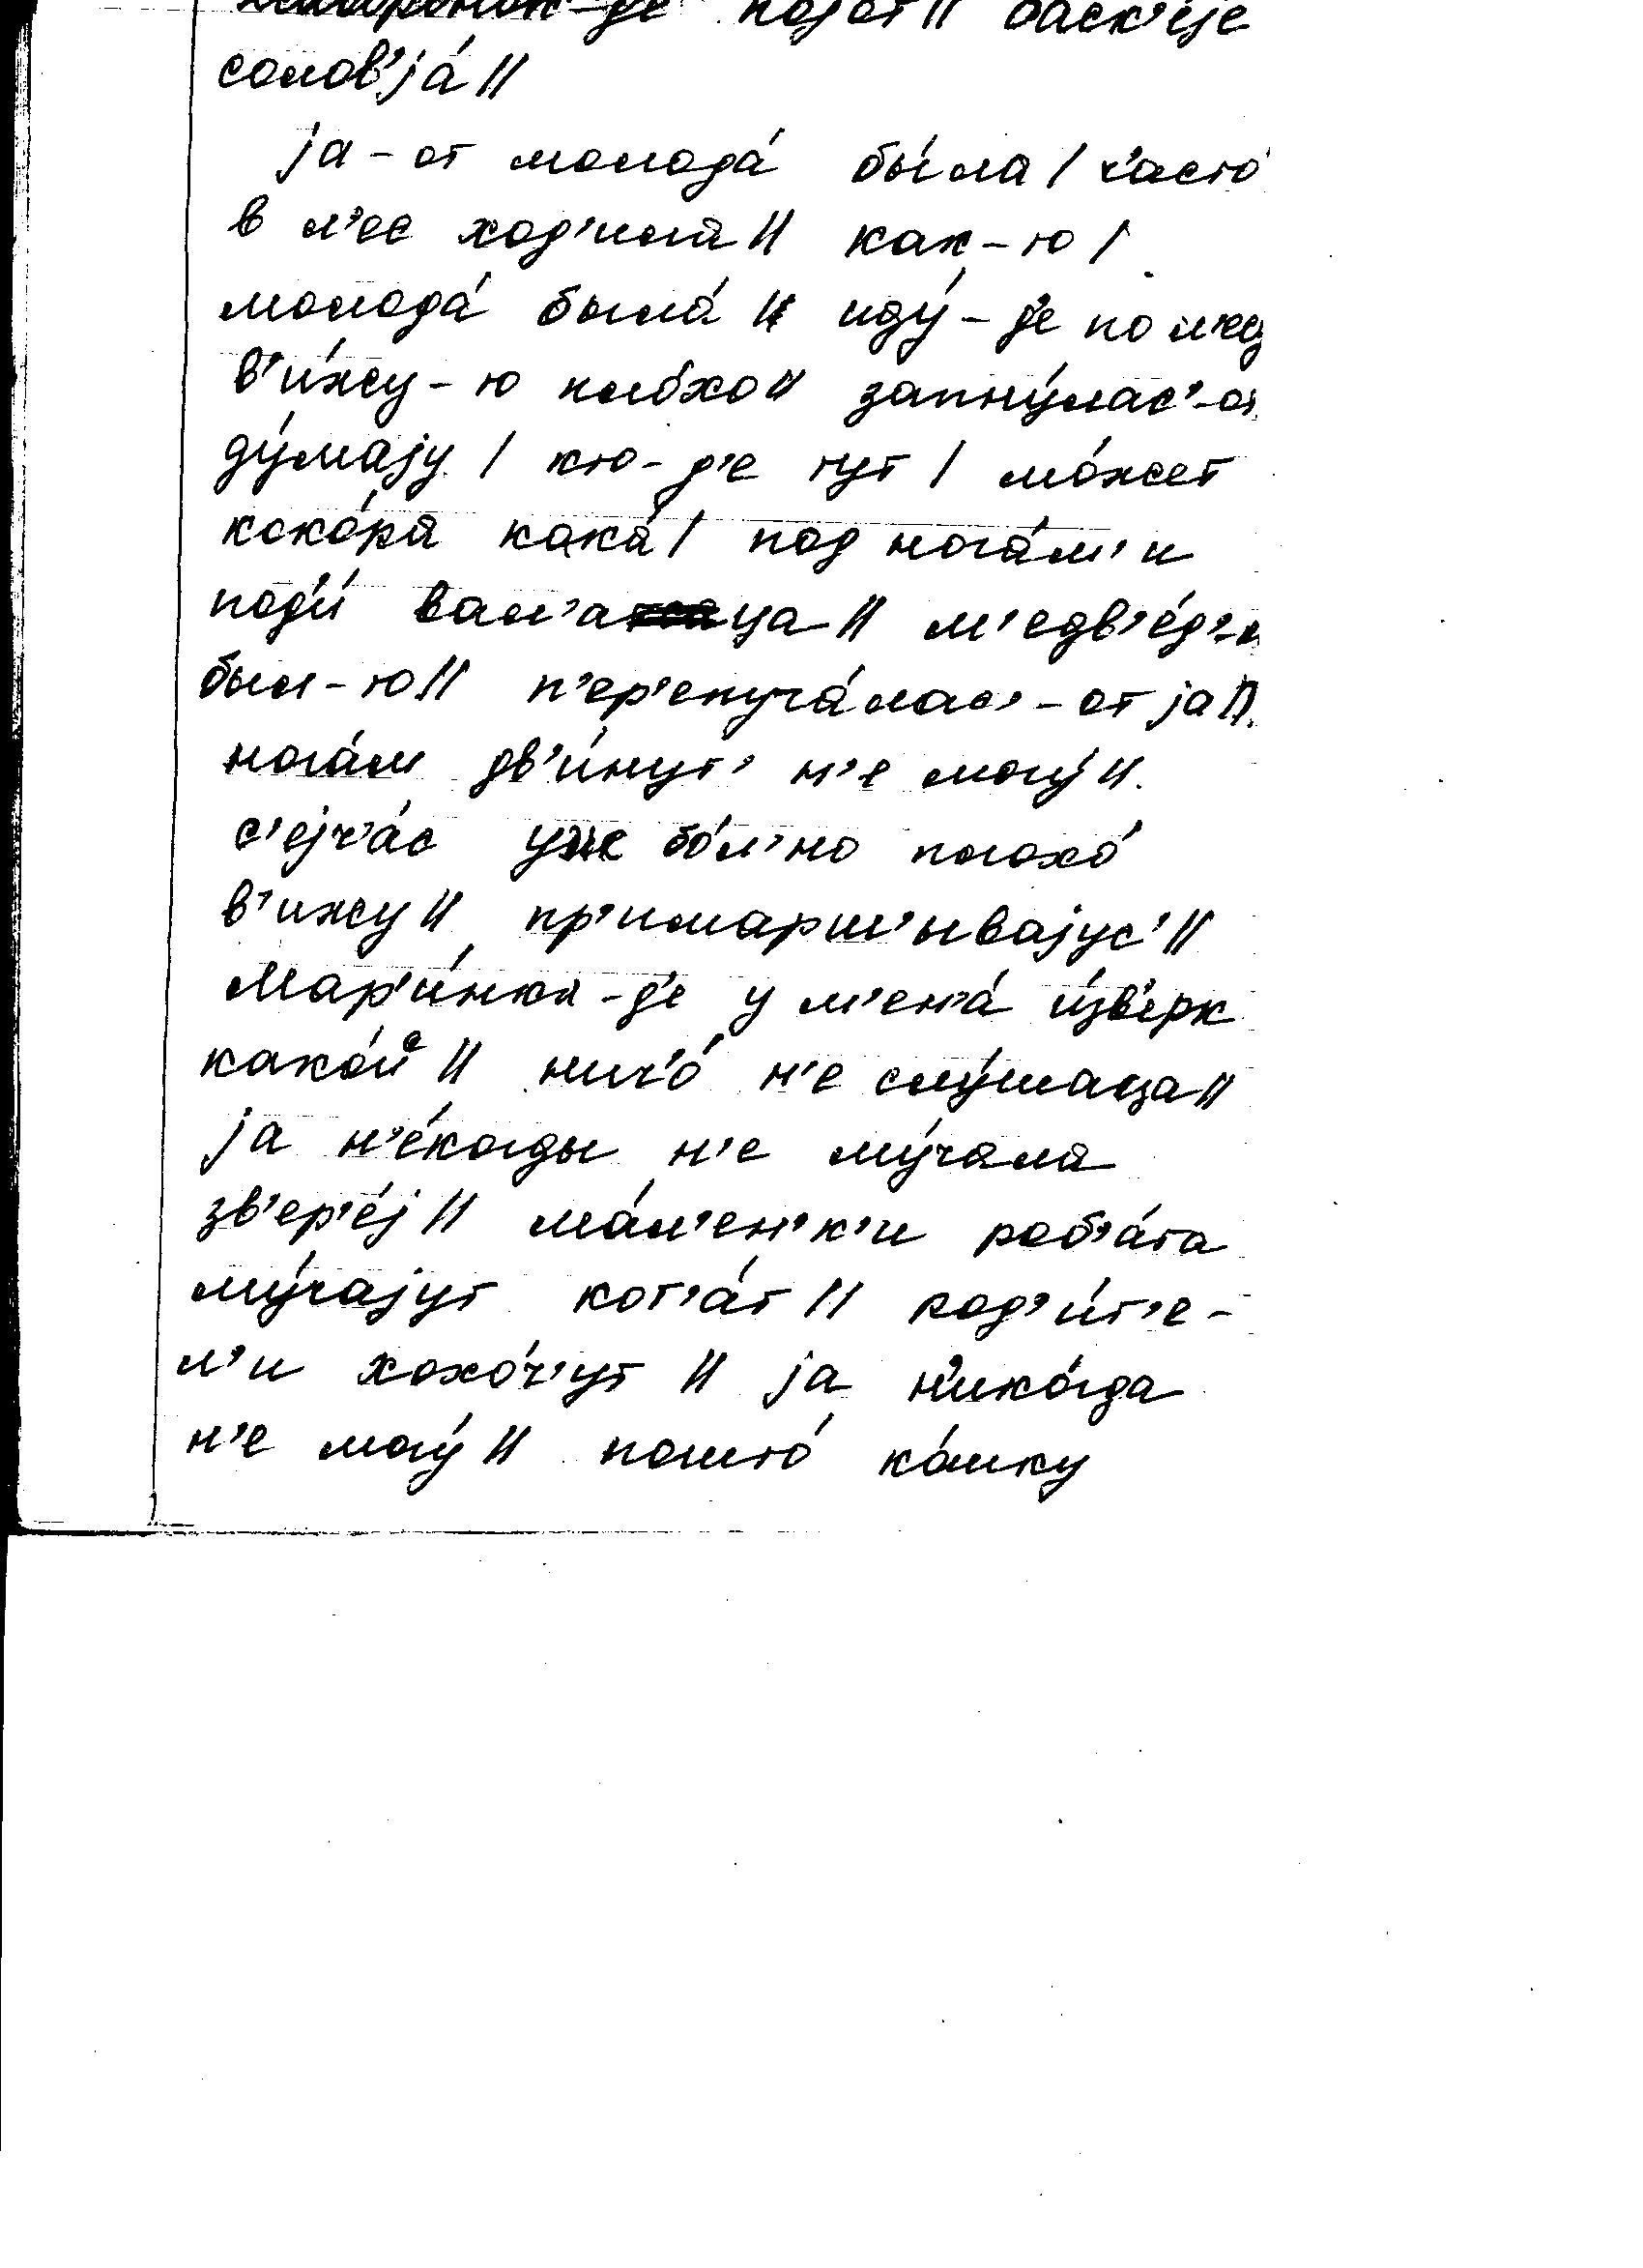 -де појот // баск'еје
солов'já //
ја - от молодá бы́ла / ч'áсто
в л'ес ход'ила // как - то /
молодá былá // иду́ - д'е по л'есу
в'и́жу - то плóхо // запну́лас' - от
ду́мају / кто - д'е тут / мóжет
кокóра какá / под ногáм'и
поди́ вал'аца // м'едв'éд' - от
был - то // п'ер'епугáлас' - от ја //
ногáм дв'и́нут' н'е могу́ //
с'ејч'áс уж бóл'но плохó
в'ижу // пр'имарш'ывајус' //
Мар'и́нка - д'е у м'ен'á и́зв'ерк
какóй // нич'ó н'е слу́шаца //
ја н'éкогды н'е му́чала
зв'ер'éј // мáл'ен'к'и роб'áта
му́чајут кот'áт // род'и́т'е -
л'и хохóч'ут // ја н'икóгда
н'е могу́ // поштó кóшку